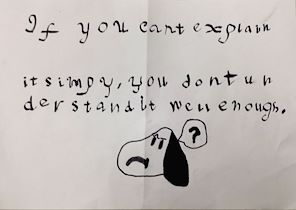 If you cant explain
it simpy, you dont un
derstand it well enough.
?